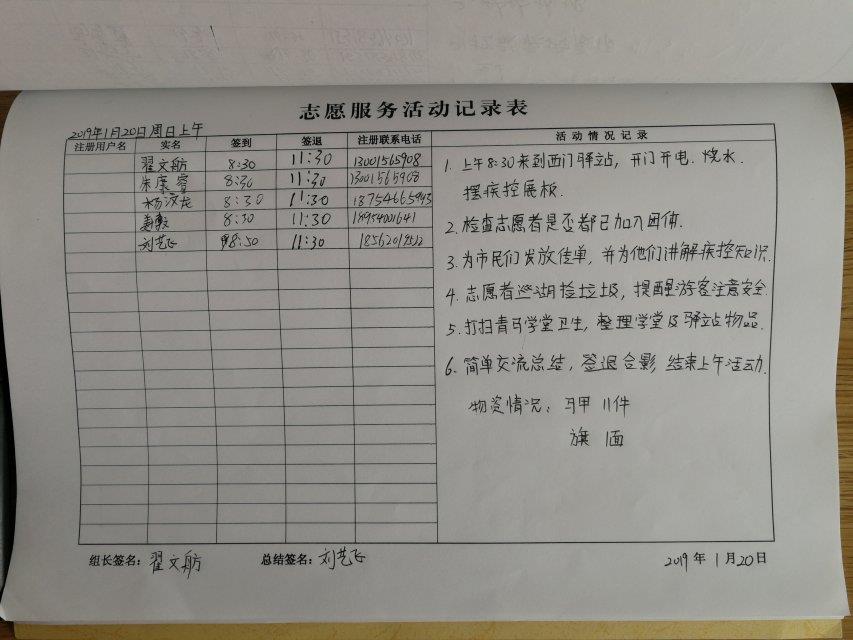 志愿服务活动记录表
2019年1月20日周日上午
注册用户名 实名 签到 签退 注册联系电话 活动情况记录
翟文舫 8:30 11:30 13001565908
朱康睿 8:30 11:30 13001565908
杨汶龙 8:30 11:30 18754665943
8:30 11:30 18954001641
刘艺飞 8:50 11:30
1. 上午8:30来到西门驿站，开门开电.烧水.
摆疾控展板.
2. 检查志愿者是否都已加入团体.
3. 为市民们发放传单，并为他们讲解疾控知识.
4. 志愿者巡湖捡垃圾，提醒游客注意安全.
5. 打扫青马学堂卫生，整理学堂及驿站物品.
6. 简单交流总结，签退合影，结束上午活动.
物资情况：马甲 11件
旗 1面
组长签名：翟文舫 总结签名：刘艺飞 2019年1月20日